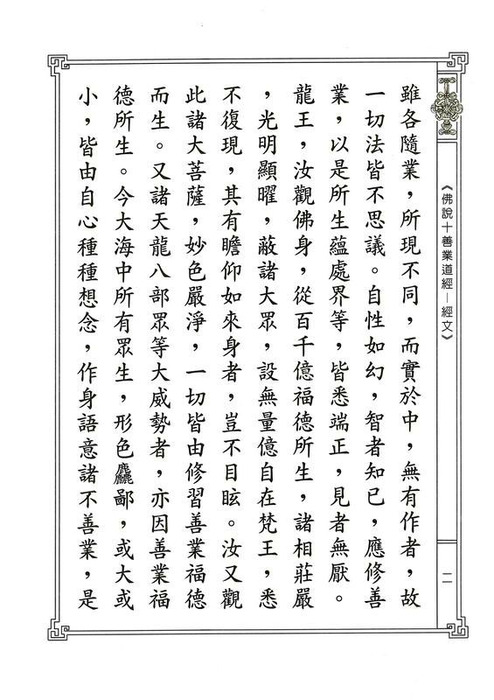 《佛說十善業道經—經文》
二
雖各隨業，所現不同，而實於中，無有作者，故
一切法皆不思議。自性如幻，智者知已，應修善
業，以是所生蘊處界等，皆悉端正，見者無厭。
龍王，汝觀佛身，從百千億福德所生，諸相莊嚴
，光明顯曜，蔽諸大眾，設無量億自在梵王，悉
不復現，其有瞻仰如來身者，豈不目眩。汝又觀
此諸大菩薩，妙色嚴淨，一切皆由修習善業福德
而生。又諸天龍八部眾等大威勢者，亦因善業福
德所生。今大海中所有眾生，形色麤鄙，或大或
小，皆由自心種種想念，作身語意諸不善業，是